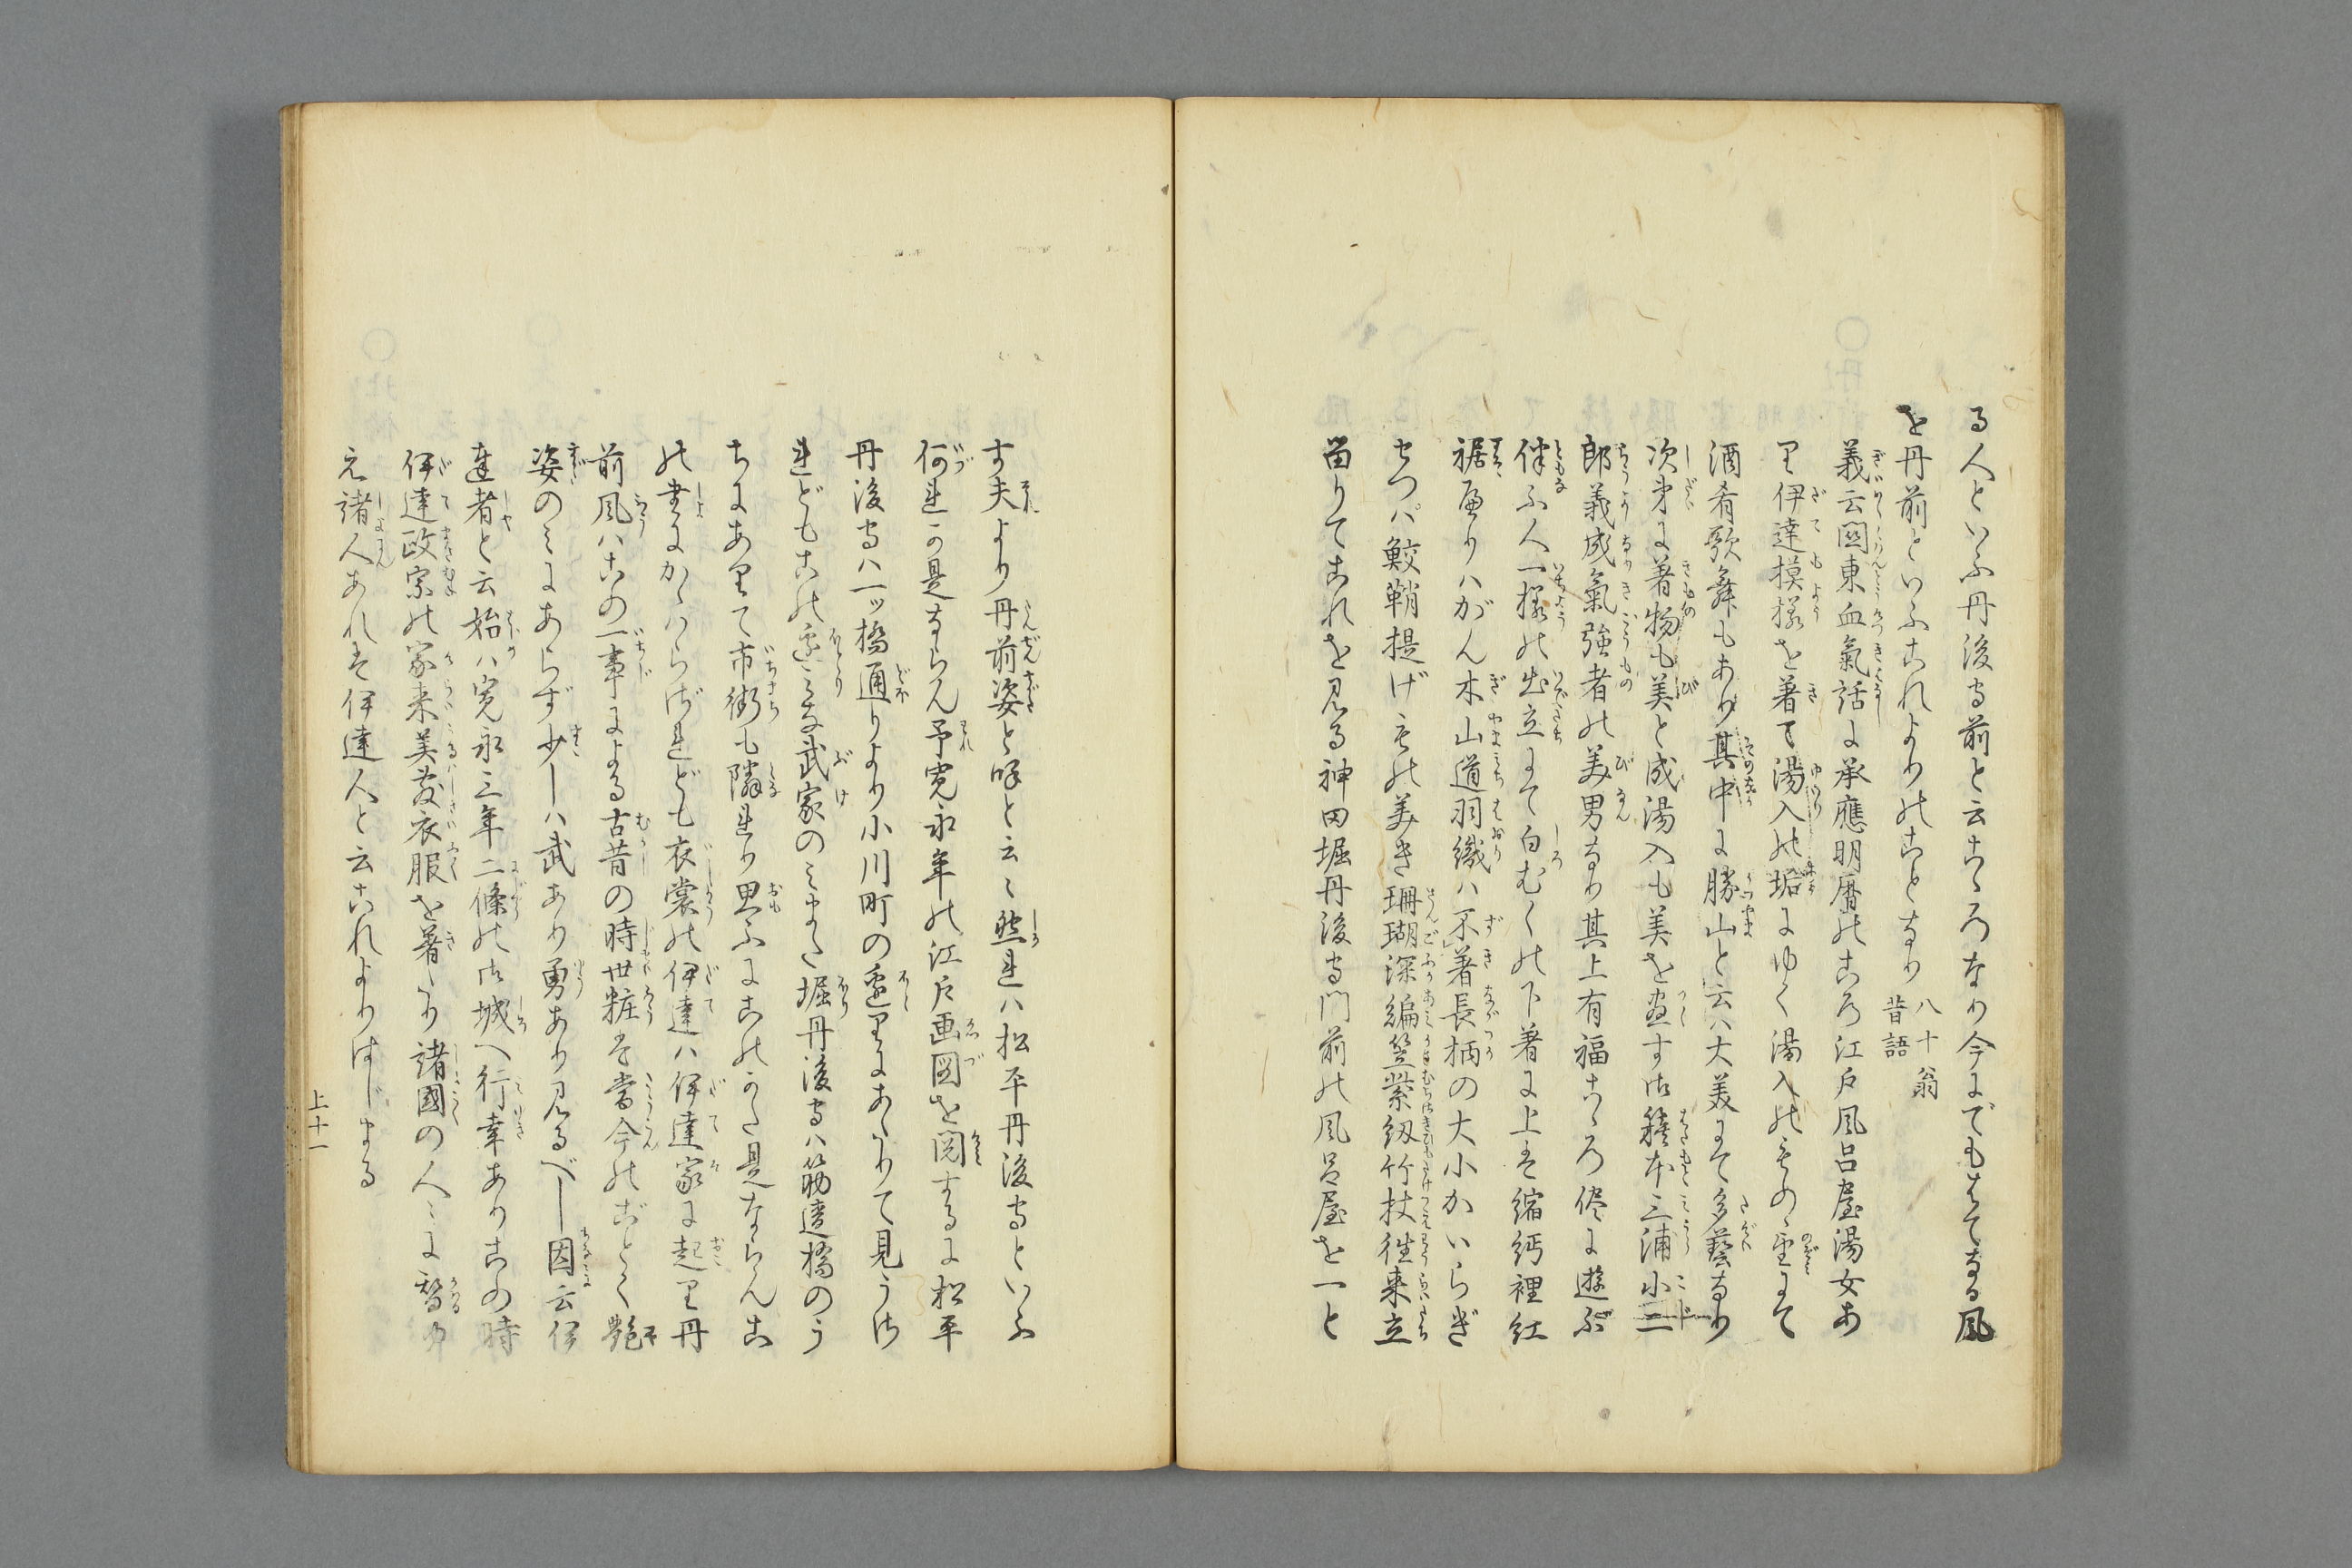 る人といふ丹後守前と云こゝろなり今までもはてなる風
を丹前といふこれよりのことなり 八十翁昔語
義云關東血氣話に承應明暦のころ江戸風呂屋湯女あ
り伊達摸様を着て湯入の垢にゆく湯入のものゝ望にて
酒肴歌舞もあり其中に勝山と云ハ大美にて多藝なり
次才に著物も美と成湯入も美を盡す御籏本三浦小二
郎義成氣強者の美男なり其上有福こゝろ侭に遊ぶ
伴ふ人一様の出立にて白むくの下著に上は縮緬裡紅
裾廻りハがん木山道羽織ハ不著長柄の大小かいらぎ
せつパ鮫鞘提げ物の美き珊瑚深編笠紫紐竹杖徃来立
留りてこれを見る神田堀丹後守門前の風呂屋を一と
す夫より丹前姿と呼と云々然れハ松平丹後守といふ
何れか是ならん予寛永年の江戸画図を閲するに松平
丹後守ハ一ッ橋通りより小川町の邊りにあたりて見うけ
れどもこの邊こと〴〵武家のミまた堀丹後守ハ筋違橋のう
ちにありて市街も隣れり思ふにこのかた是ならんこ
の書にかゝハらざれども衣裳の伊達ハ伊達家に起り丹
前風ハこの一事による古昔の時世粧は當今のごとく艶
姿のミにあらず少しハ武あり勇あり見るべし因云伊
達者と云始ハ寛永三年二條の御城へ行幸ありこの時
伊達政宗の家来美麗衣服を著たり諸國の人々に替ゆ
え諸人あれは伊達人と云これよりはじまる
上十一